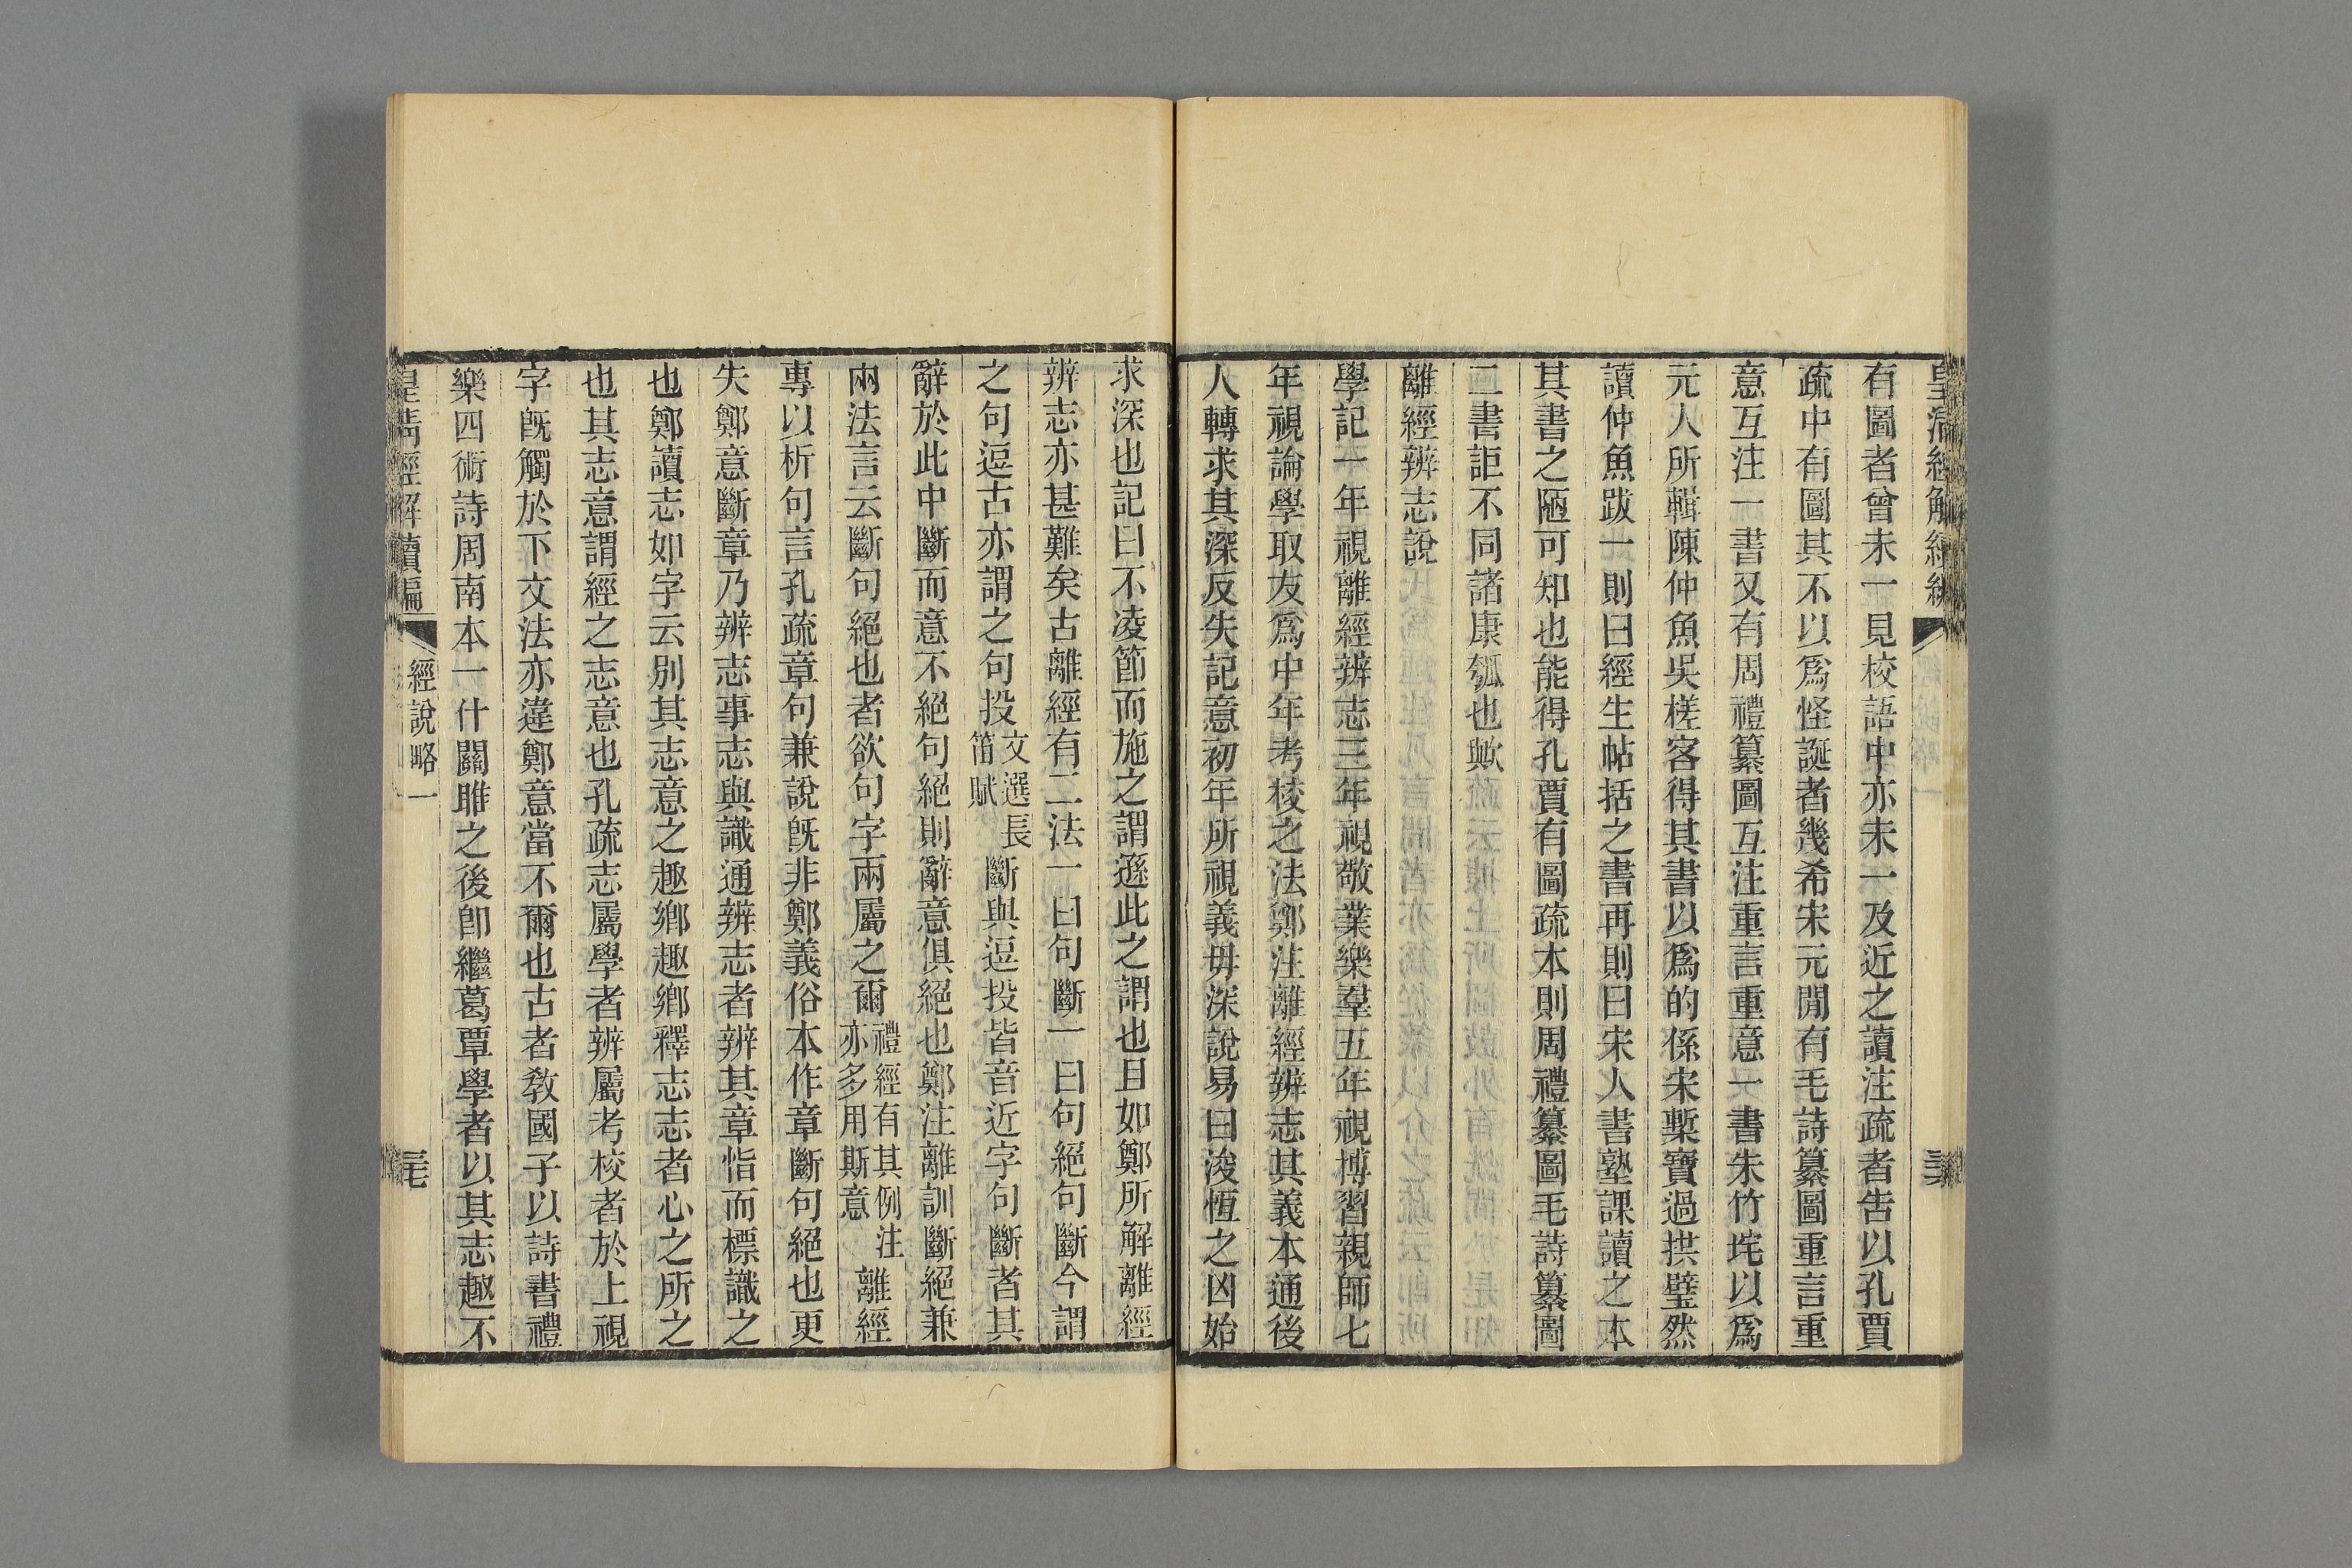 有圖者曾未一見校語中亦未一及近之讀注疏者吿以孔賈
疏中有圖其不以爲怪誕者幾希宋元閒有毛詩纂圖重言重
意互注一書又有周禮纂圖互注重言重意一書朱竹垞以爲
元人所輯陳仲魚吳槎客得其書以爲的係宋槧寶過拱璧然
讀仲魚跋一則曰經生帖括之書再則曰宋人書塾課讀之本
其書之陋可知也能得孔賈有圖疏本則周禮纂圖毛詩纂圖
二書詎不同諸康瓠也歟
離經辨志說
學記一年視離經辨志三年視敬業樂羣五年視博習親師七
年視論學取友爲中年考校之法鄭注離經辨志其義本通後
人轉求其深反失記意初年所視義毋深說易曰浚恆之凶始
求深也記曰不凌節而施之謂遜此之謂也且如鄭所解離經
辨志亦甚難矣古離經有二法一曰句斷一曰句絕句斷今謂
之句逗古亦謂之句投文選長笛賦斷與逗投皆音近字句斷者其
辭於此中斷而意不絕句絕則辭意俱絕也鄭注離訓斷絕兼
兩法言云斷句絕也者欲句字兩屬之爾禮經有其例注亦多用斯意離經
專以析句言孔疏章句兼說旣非鄭義俗本作章斷句絕也更
失鄭意斷章乃辨志事志與識通辨志者辨其章恉而標識之
也鄭讀志如字云別其志意之趣鄕趣鄕釋志志者心之所之
也其志意謂經之志意也孔疏志屬學者辨屬考校者於上視
字旣觸於下文法亦違鄭意當不爾也古者敎國子以詩書禮
樂四術詩周南本一什關雎之後卽繼葛覃學者以其志趣不
皇淸經解續編
經說略一